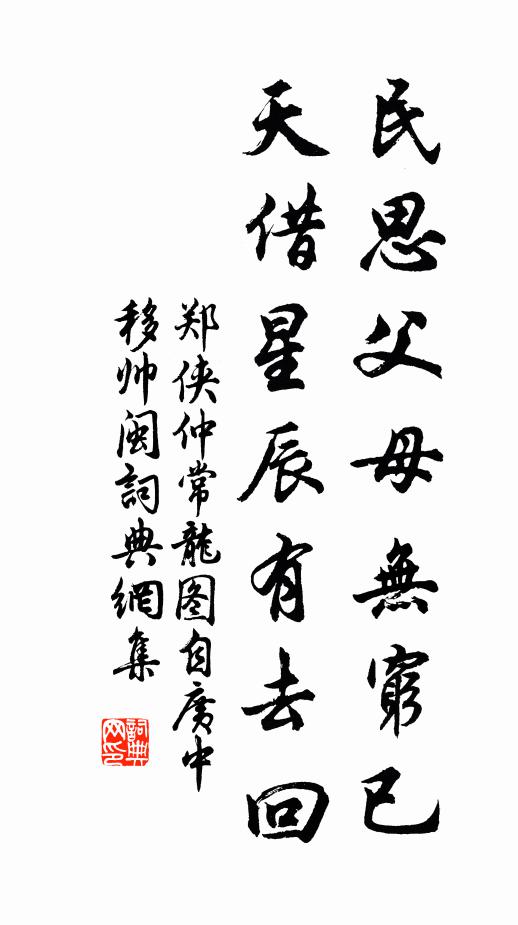 民思父母無窮已
天借星辰有去回
郑侠仲常龍图自廣中
移帅閩詞典網集
詞典網印